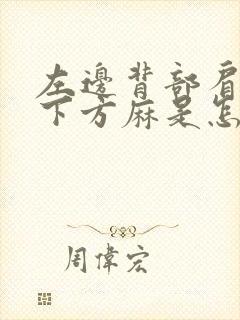 左邊背部肩
下方麻是怎
周偉宏